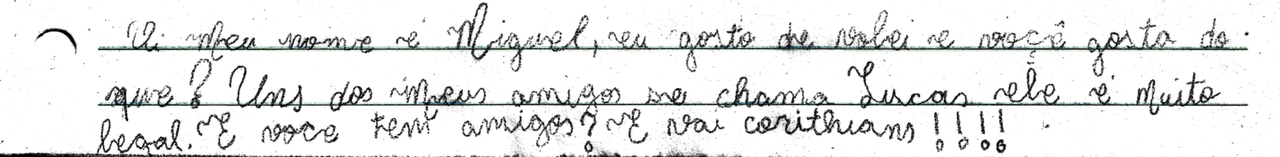 Oi meu nome e Miguel, eu gosto de volei e voçê gosta do
que? Uns dos meus amigos se chama Lucas ele é muito
legal. E voce tem amigos? E vai corithians!!!!